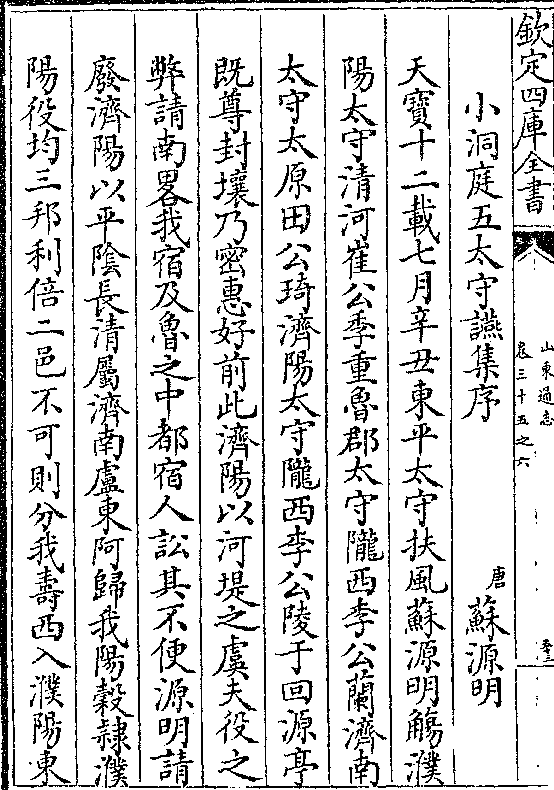 欽定四庫全書
山東通志
卷三十五之六
小洞庭五太守讌集序
唐 蘇源明
天寶十二載七月辛丑東平太守扶風蘇源明觴濮
陽太守清河崔公季重魯郡太守隴西李公蘭濟南
太守太原田公琦濟陽太守隴西李公陵于回源亭
既尊封壤乃密惠好前此濟陽以河堤之虞夫役之
弊請南畧我宿及魯之中都宿人訟其不便源明請
廢濟陽以平陰長清屬濟南盧東阿歸我陽穀隷濮
陽役均三邦利倍二邑不可則分我壽西入濮陽東